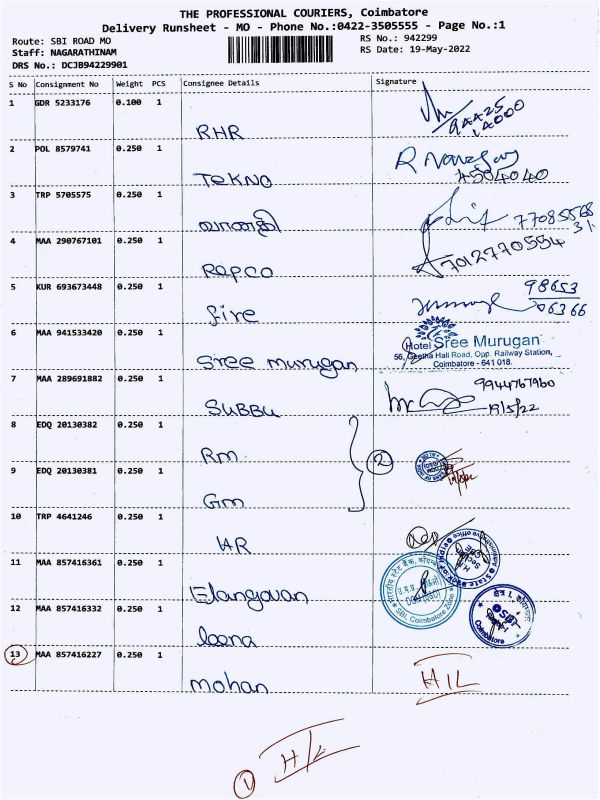 THE PROFESSIONAL COURIERS, Coimbatore
Delivery Runsheet - MO - Phone No.:0422-3505555 - Page No.:1
Route: SBI ROAD MO
Staff: NAGARATHINAM
DRS No.: DCJB94229901
RS No.: 942299
RS Date: 19-May-2022
S No Consignment No Weight PCS Consignee Details Signature
1 GDR 5233176 0.100 1
RHR
9442514000
2 POL 8579741 0.250 1
TEKNO
4504040
3 TRP 5705575 0.250 1
7708556831
4 MAA 290767101 0.250 1
Repco
7012770554
5 KUR 693673448 0.250 1
fire
98653
06366
6 MAA 941533420 0.250 1
Sree murugan
Hotel Sree Murugan
56, Geetha Hall Road, Opp. Railway Station,
Coimbatore - 641 018.
7 MAA 289691882 0.250 1
SUBBU
9944767960
19/5/22
8 EDQ 20130382 0.250 1
Rm
2
9 EDQ 20130381 0.250 1
Gm
10 TRP 4641246 0.250 1
HR
11 MAA 857416361 0.250 1
Elangovan
12 MAA 857416332 0.250 1
leena
SBI
Coimbatore
13 MAA 857416227 0.250 1
mohan